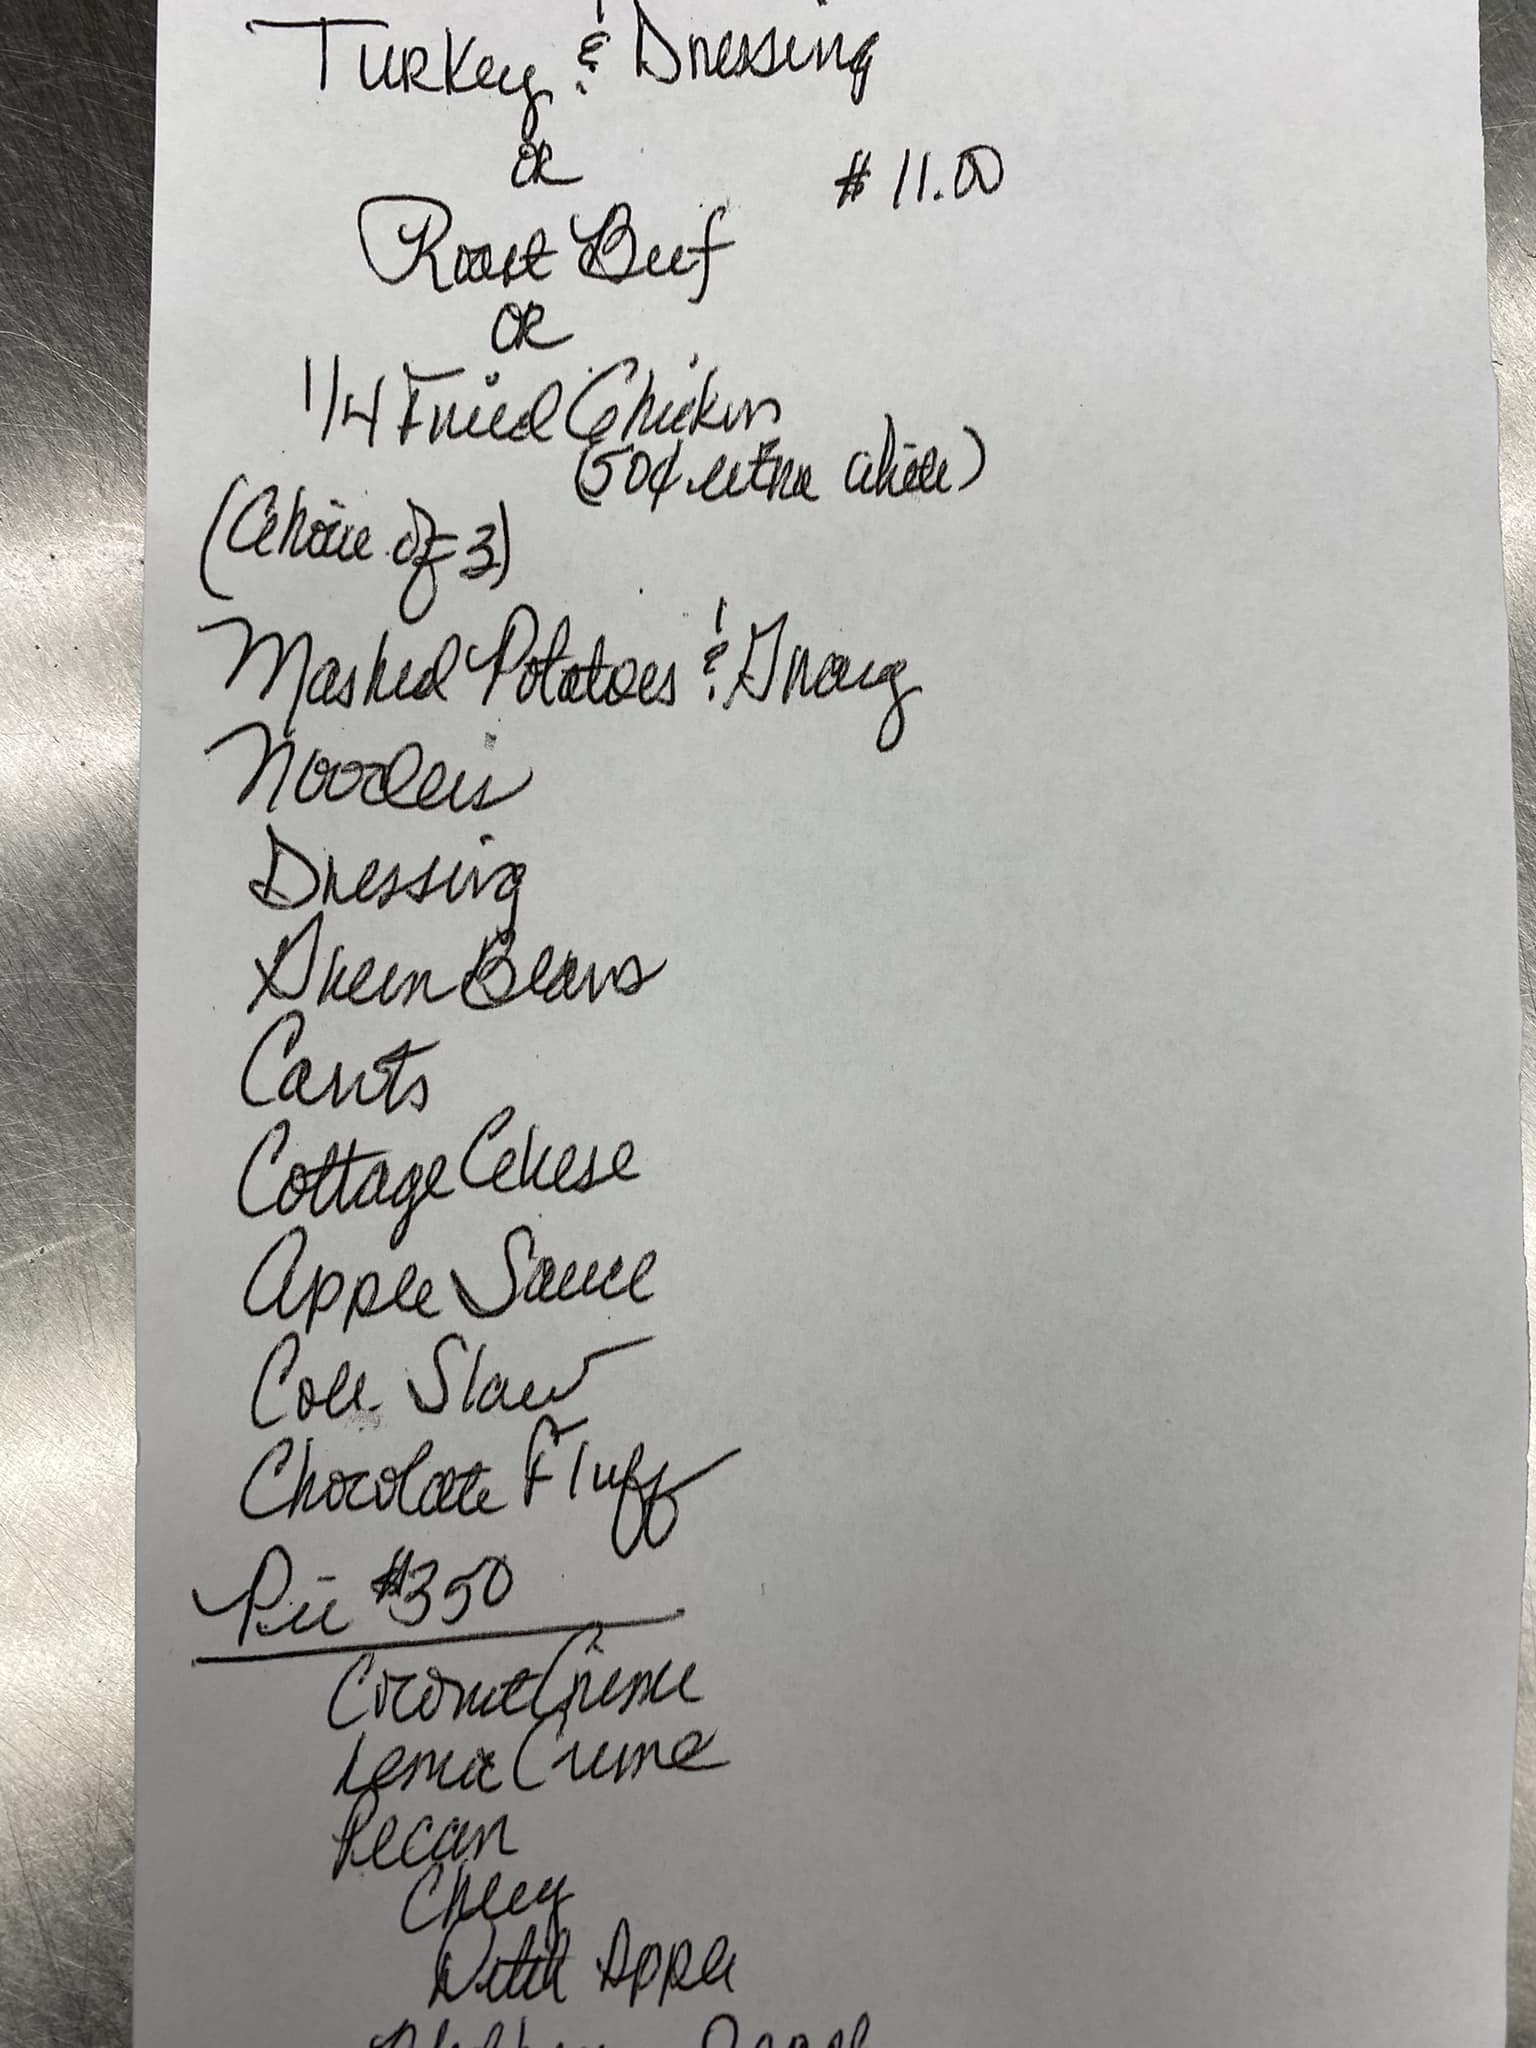 Turkey & Dressing
OR
$11.00
Roast Beef
OR
1/4 Fried Chicken
(50¢ extra white)
(Choice of 3)
Mashed Potatoes & Gravy
Noodles
Dressing
Green Beans
Carrots
Cottage Cheese
Apple Sauce
Cole Slaw
Chocolate Fluff
Pie $3.50
Coconut Creme
Lemon Creme
Pecan
Cherry
Dutch Apple